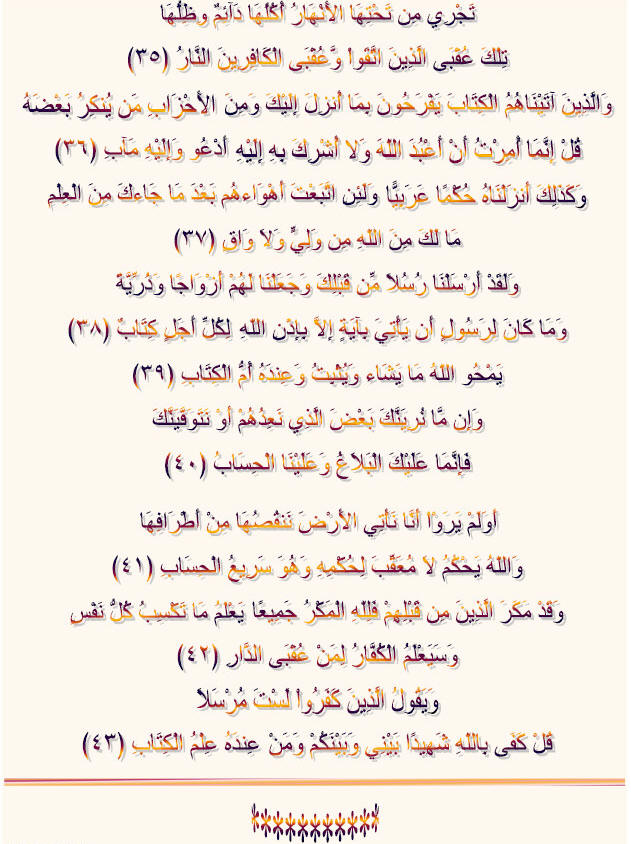 تَجْرِي مِن تَحْتِهَا الأَنْهَارُ أُكُلُهَا دَآئِمٌ وِظِلُّهَا
تِلْكَ عُقْبَى الَّذِينَ اتَّقَواْ وَّعُقْبَى الْكَافِرِينَ النَّارُ (٣٥)
وَالَّذِينَ آتَيْنَاهُمُ الْكِتَابَ يَفْرَحُونَ بِمَا أُنزِلَ إِلَيْكَ وَمِنَ الأَحْزَابِ مَن يُنكِرُ بَعْضَهُ
قُلْ إِنَّمَا أُمِرْتُ أَنْ أَعْبُدَ اللهَ وَلا أُشْرِكَ بِهِ إِلَيْهِ أَدْعُو وَإِلَيْهِ مَآبِ (٣٦)
وَكَذَلِكَ أَنزَلْنَاهُ حُكْمًا عَرَبِيًّا وَلَئِنِ اتَّبَعْتَ أَهْوَاءهُم بَعْدَ مَا جَاءكَ مِنَ الْعِلْمِ
مَا لَكَ مِنَ اللهِ مِن وَلِيٍّ وَلاَ وَاقٍ (٣٧)
وَلَقَدْ أَرْسَلْنَا رُسُلاً مِّن قَبْلِكَ وَجَعَلْنَا لَهُمْ أَزْوَاجًا وَذُرِّيَّةً
وَمَا كَانَ لِرَسُولٍ أَن يَأْتِيَ بِآيَةٍ إِلاَّ بِإِذْنِ اللهِ لِكُلِّ أَجَلٍ كِتَابٌ (٣٨)
يَمْحُو اللهُ مَا يَشَاء وَيُثْبِتُ وَعِندَهُ أُمُّ الْكِتَابِ (٣٩)
وَإِن مَّا نُرِيَنَّكَ بَعْضَ الَّذِي نَعِدُهُمْ أَوْ نَتَوَفَّيَنَّكَ
فَإِنَّمَا عَلَيْكَ الْبَلاَغُ وَعَلَيْنَا الْحِسَابُ (٤٠)
أَوَلَمْ يَرَوْاْ أَنَّا نَأْتِي الأَرْضَ نَنقُصُهَا مِنْ أَطْرَافِهَا
وَاللهُ يَحْكُمُ لاَ مُعَقِّبَ لِحُكْمِهِ وَهُوَ سَرِيعُ الْحِسَابِ (٤١)
وَقَدْ مَكَرَ الَّذِينَ مِن قَبْلِهِمْ فَلِلّهِ الْمَكْرُ جَمِيعًا يَعْلَمُ مَا تَكْسِبُ كُلُّ نَفْسٍ
وَسَيَعْلَمُ الْكُفَّارُ لِمَنْ عُقْبَى الدَّارِ (٤٢)
وَيَقُولُ الَّذِينَ كَفَرُواْ لَسْتَ مُرْسَلاً
قُلْ كَفَى بِاللهِ شَهِيدًا بَيْنِي وَبَيْنَكُمْ وَمَنْ عِندَهُ عِلْمُ الْكِتَابِ (٤٣)